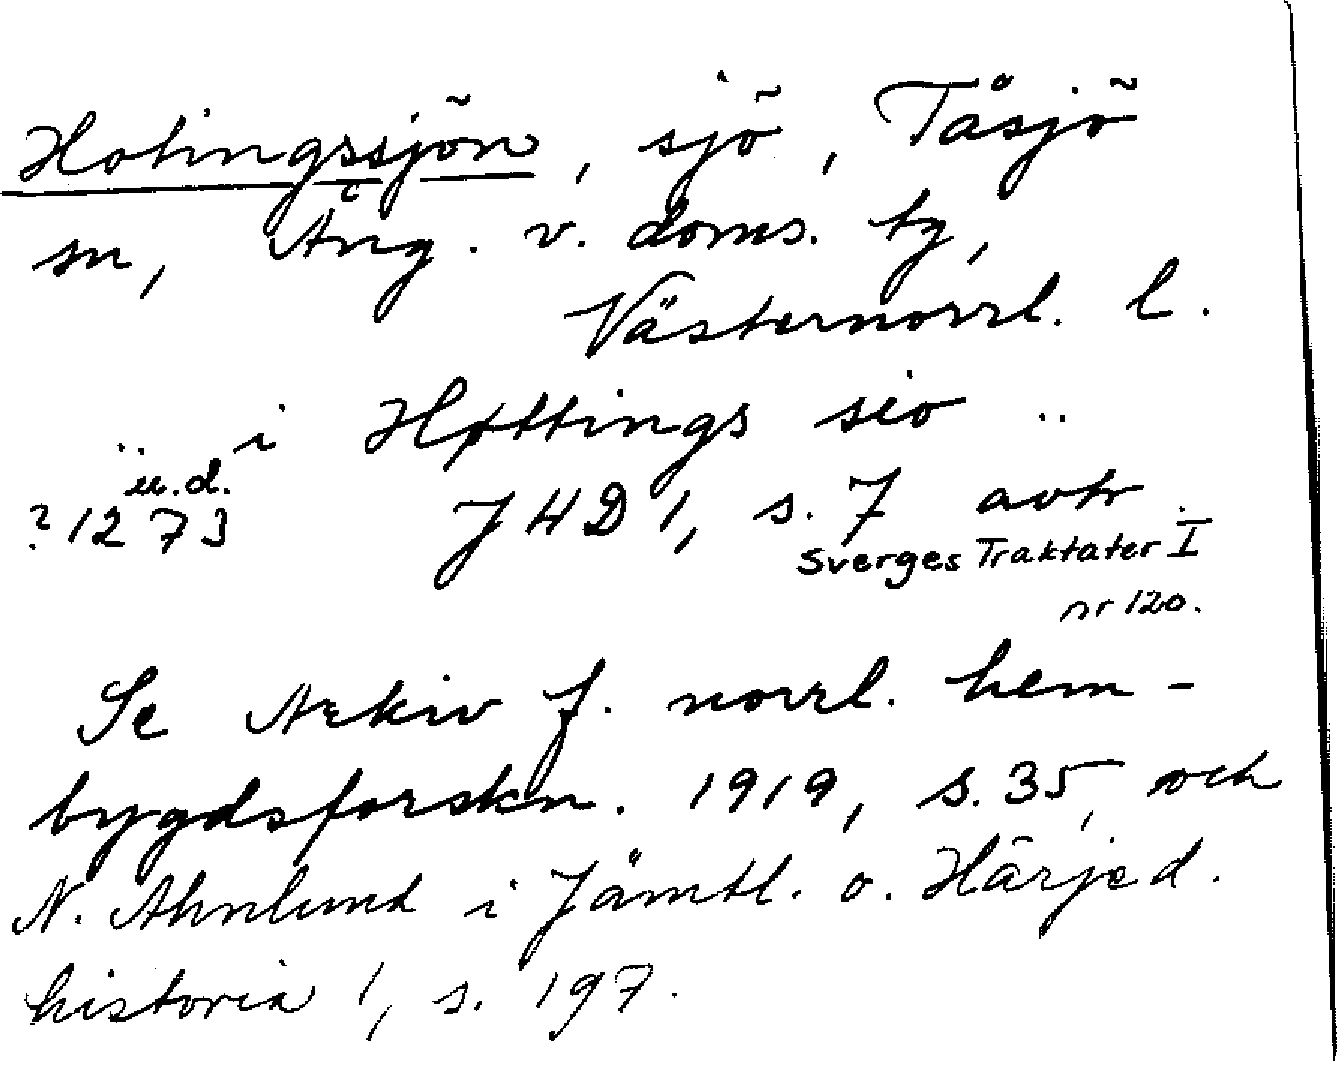 Hotingssjön, sjö, Tåsjö
sn, Ång. v. doms. tg,
Västernorrl. l.
.. i Høttings sio ..
u.d.
? 1273 JHD 1, s. 7 avtr.
Sverges Traktater I
nr 120.
Se Arkiv f. norrl. hem-
bygdsforskn. 1919, s. 35, och
N. Ahnlund i Jämtl. o. Härjed.
historia 1, s. 197.